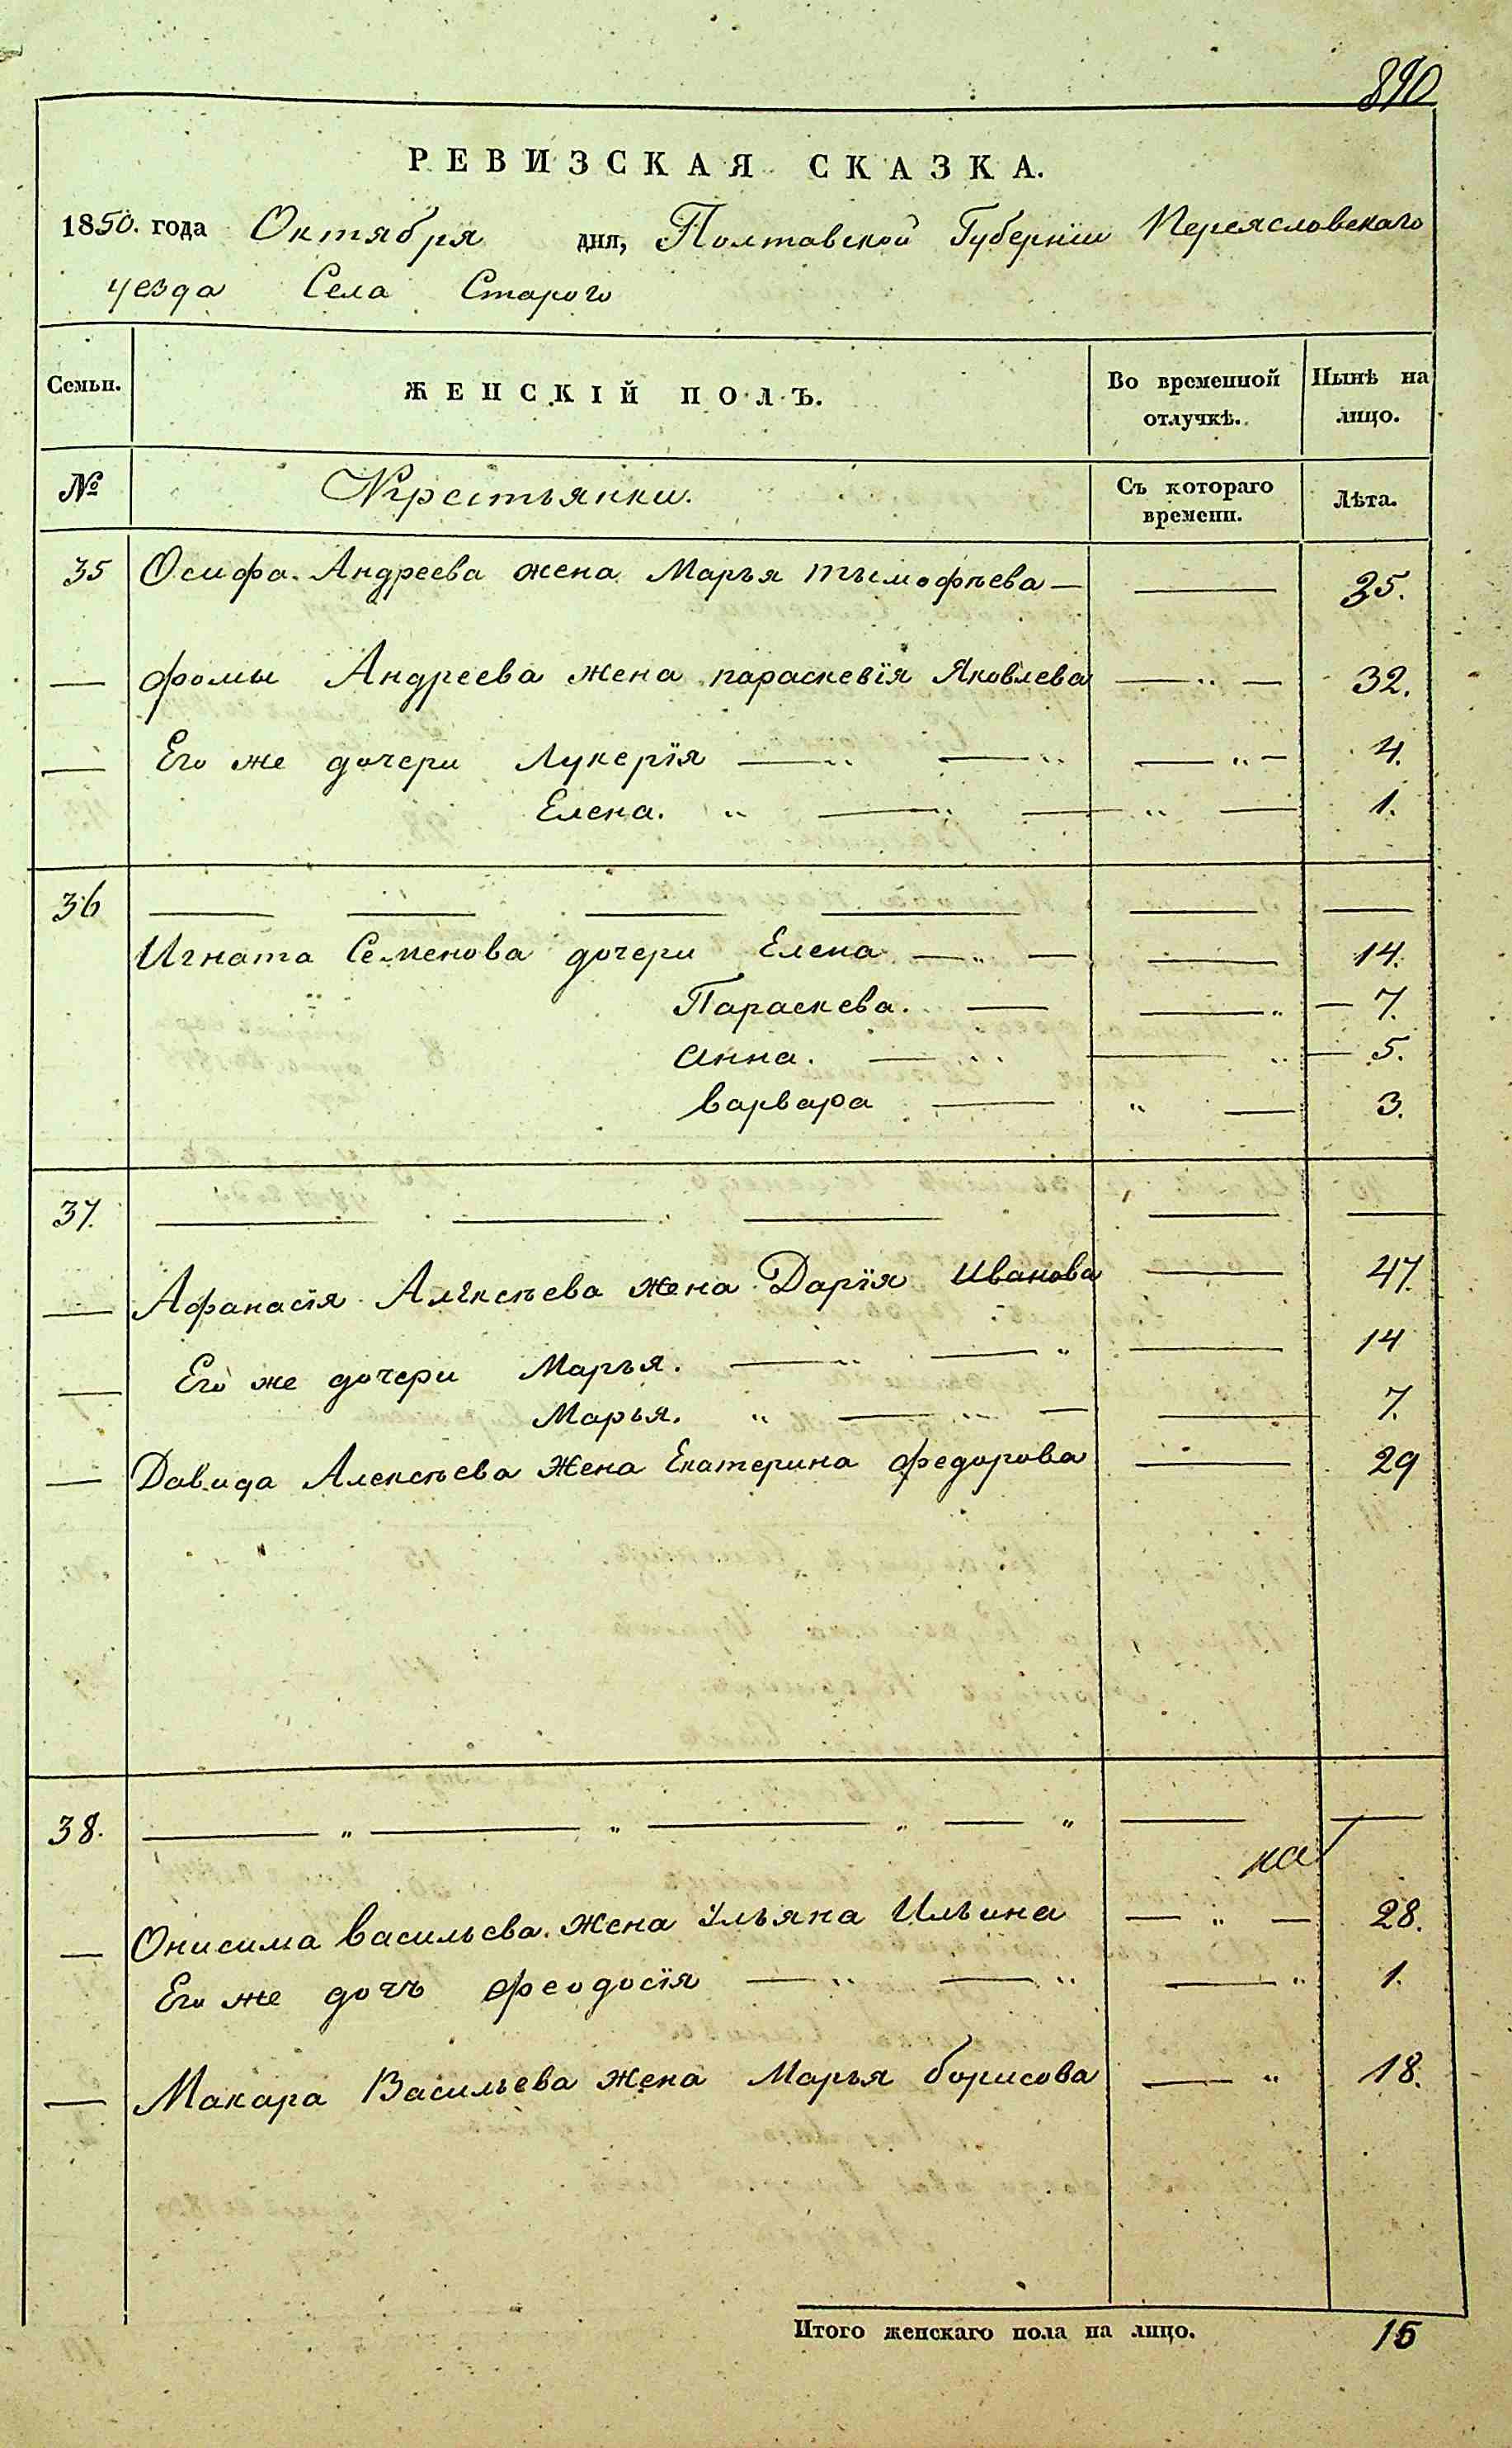 890
РЕВИЗСКАЯ СКАЗКА.
1850. года Октября дня, Полтавской Губерніи Переясловскаго
уезда Села Старого
Семьи. ЖЕНСКІЙ ПОЛЪ. Во временной отлучкѣ. Нынѣ на лицо.
№ Крестьянки. Съ котораго времени. Лѣта.
35 Осифа Андреева жена Марья тымофѣева — — 35.
— фомы Андреева жена параскевія Яковлева — „ — 32.
— Его же дочери Лукерія — „ — „ — „ — 4.
Елена. „ — „ — „ — 1.
36 — — — — — —
Игната Семенова дочери Елена — „ — — 14.
Параскева. — — „ — 7.
Анна. — „ — „ — 5.
варвара — „ — 3.
37. — — — — —
— Афанасія Алексѣева жена Дарія Иванова — 47.
— Его же дочери Марья. — „ — „ — 14
Марья. „ — „ — — 7.
— Давида Алексѣева жена Екатерина федорова — 29
38. — „ — „ — „ — „ — —
на
— Онисима васильева жена Ульяна Ильина — „ — 28.
Его же дочь феодосія — „ — „ — „ 1.
— Макара Васильева жена Марья борисова — „ 18.
Итого женскаго пола на лицо. 15